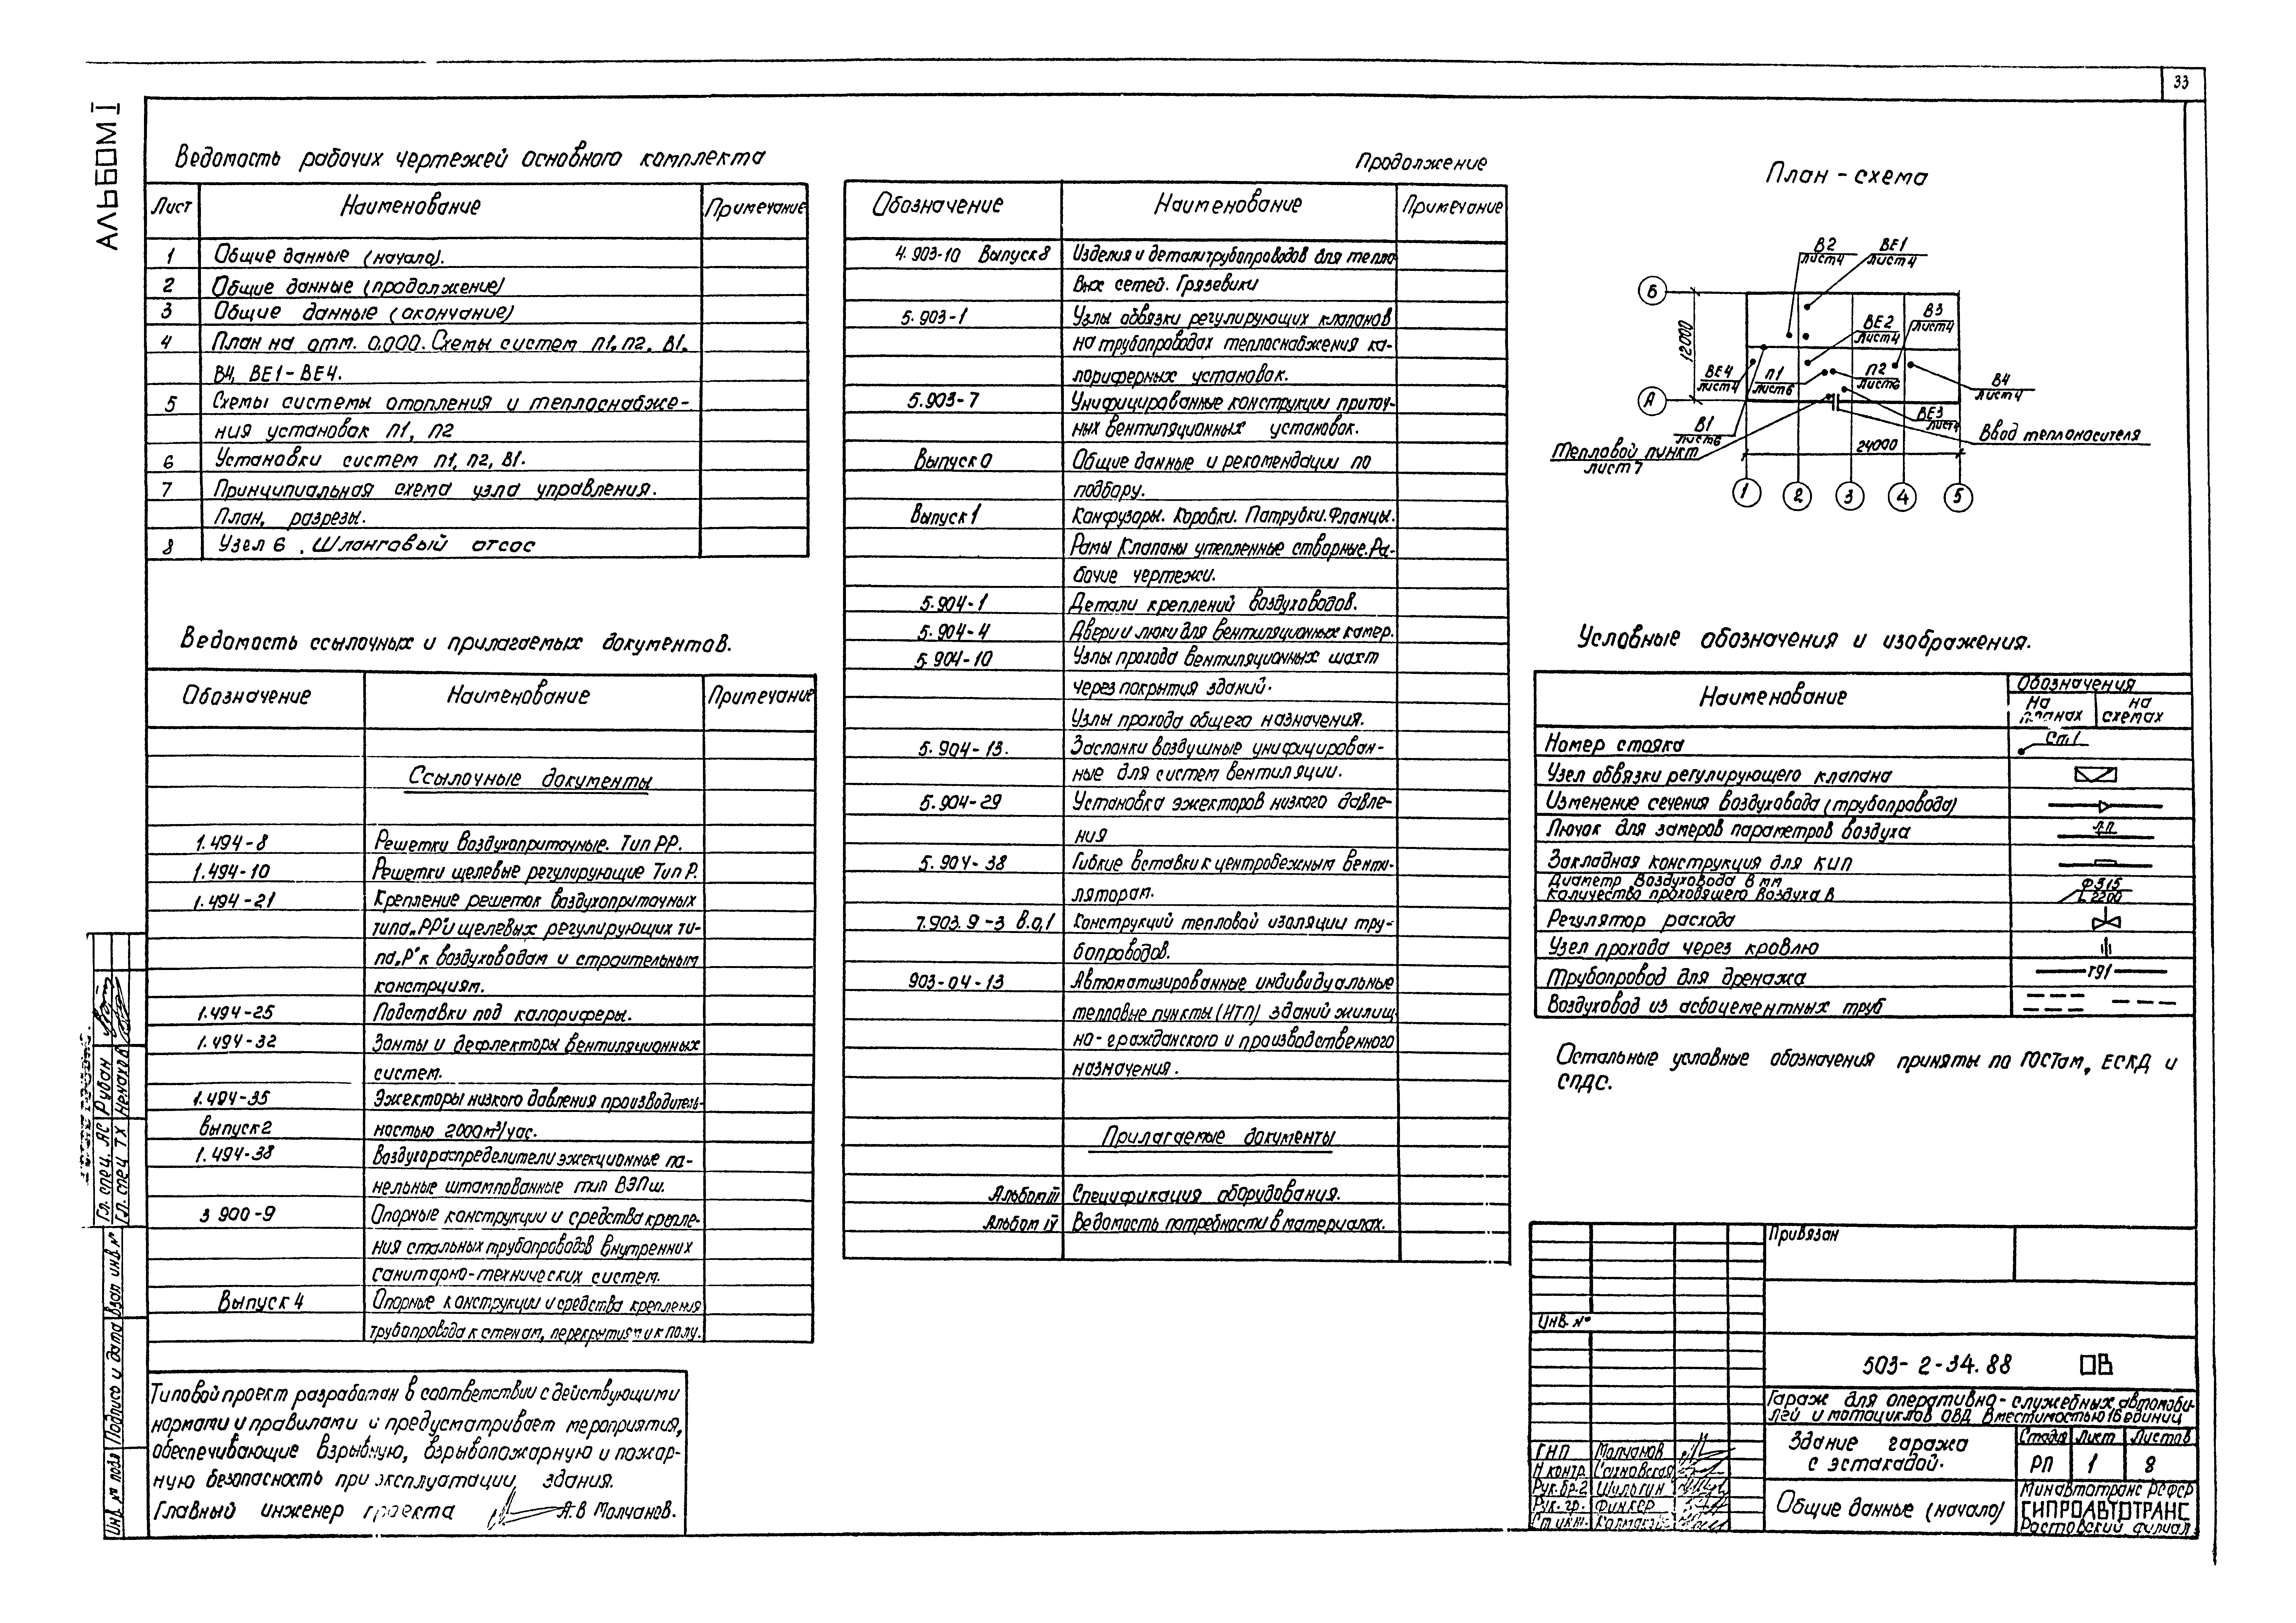 33
АЛЬБОМ I
Ведомость рабочих чертежей основного комплекта
Лист Наименование Примечание
1 Общие данные (начало).
2 Общие данные (продолжение)
3 Общие данные (окончание)
4 План на отм. 0,000. Схемы систем П1, П2, В1,
В4, ВЕ1-ВЕ4.
5 Схемы системы отопления и теплоснабже-
ния установок П1, П2
6 Установки систем П1, П2, В1.
7 Принципиальная схема узла управления.
План, разрезы.
8 Узел 6. Шланговый отсос
Ведомость ссылочных и прилагаемых документов.
Обозначение Наименование Примечание
Ссылочные документы
1.494-8 Решетки воздухоприточные. Тип РР.
1.494-10 Решетки щелевые регулирующие Тип Р.
1.494-21 Крепление решеток воздухоприточных
типа „РР" и щелевых регулирующих ти-
па „Р" к воздуховодам и строительным
конструциям.
1.494-25 Подставки под калориферы.
1.494-32 Зонты и дефлекторы вентиляционных
систем.
1.494-35 Эжекторы низкого давления производитель-
выпуск 2 ностью 2000м³/час.
1.494-38 Воздухораспределители эжекционные па-
нельные штампованные тип ВЭПш.
3 900-9 Опорные конструкции и средства крепле-
ния стальных трубопроводов внутренних
санитарно-технических систем.
Выпуск 4 Опорные конструкции и средства крепления
трубопровода к стенам, перекрытиям и к полу.
Типовой проект разработан в соответствии с действующими
нормами и правилами и предусматривает мероприятия,
обеспечивающие взрывную, взрывопожарную и пожар-
ную безопасность при эксплуатации здания.
Главный инженер проекта А.В Молчанов.
Продолжение
Обозначение Наименование Примечание
4.903-10 Выпуск 8 Изделия и детали трубопроводов для тепло
вых сетей. Грязевики
5.903-1 Узлы обвязки регулирующих клапанов
на трубопроводах теплоснабжения ка-
лориферных установок.
5.903-7 Унифицированные конструкции приточ-
ных вентиляционных установок.
Выпуск 0 Общие данные и рекомендации по
подбору.
Выпуск 1 Конфузоры. Коробки. Патрубки. Фланцы.
Рамы Клапаны утепленные створные. Ра-
бочие чертежи.
5.904-1 Детали креплений воздуховодов.
5.904-4 Двери и люки для вентиляционных камер.
5.904-10 Узлы прохода вентиляционных шахт
через покрытия зданий.
Узлы прохода общего назначения.
5.904-13. Заслонки воздушные унифицирован-
ные для систем вентиляции.
5.904-29 Установка эжекторов низкого давле-
ния
5.904-38 Гибкие вставки к центробежным венти-
ляторам.
7.903.9-3 в.0,1 Конструкций тепловой изоляции тру-
бопроводов.
903-04-13 Автоматизированные индивидуальные
тепловые пункты (ИТП) зданий жилищ
но-гражданского и производственного
назначения.
Прилагаемые документы
Альбом III Спецификация оборудования.
Альбом IV Ведомость потребности в материалах.
План-схема
В2 лист4
ВЕ1 лист4
Б
12000
ВЕ2 лист4
В3 лист4
ВЕ4 лист4
П1 лист6
П2 лист6
В4 лист4
А
ВЕ3 лист4
В1 лист6
Ввод теплоносителя
Тепловой пункт
лист 7
24000
1 2 3 4 5
Условные обозначения и изображения.
Наименование Обозначения
На планах на схемах
Номер стояка Ст.1
Узел обвязки регулирующего клапана
Изменение сечения воздуховода (трубопровода)
Лючок для замеров параметров воздуха
Закладная конструкция для КИП
Диаметр воздуховода в мм Ф315
количество проходящего воздуха в L2200
Регулятор расхода
Узел прохода через кровлю
Трубопровод для дренажа Т91
Воздуховод из асбоцементных труб
Остальные условные обозначения приняты по ГОСТам, ЕСКД и
СПДС.
Привязан
Инв. №
503-2-34.88 ОВ
Гараж для оперативно-служебных автомоби-
лей и мотоциклов ОВД вместимостью 16 единиц
Здание гаража
с эстакадой.
Стадия Лист Листов
РП 1 8
Общие данные (начало)
Минавтотранс РСФСР
ГИПРОАВТОТРАНС
Ростовский филиал
ГИП Молчанов
Н контр. Сахновская
Рук. бр-2 Шульгин
Рук. гр. Финкер
Ст инж.
Гл. спец. АС Рубан
Гл. спец ТХ
Взам инв. №
Подпись и дата
Инв. № подл